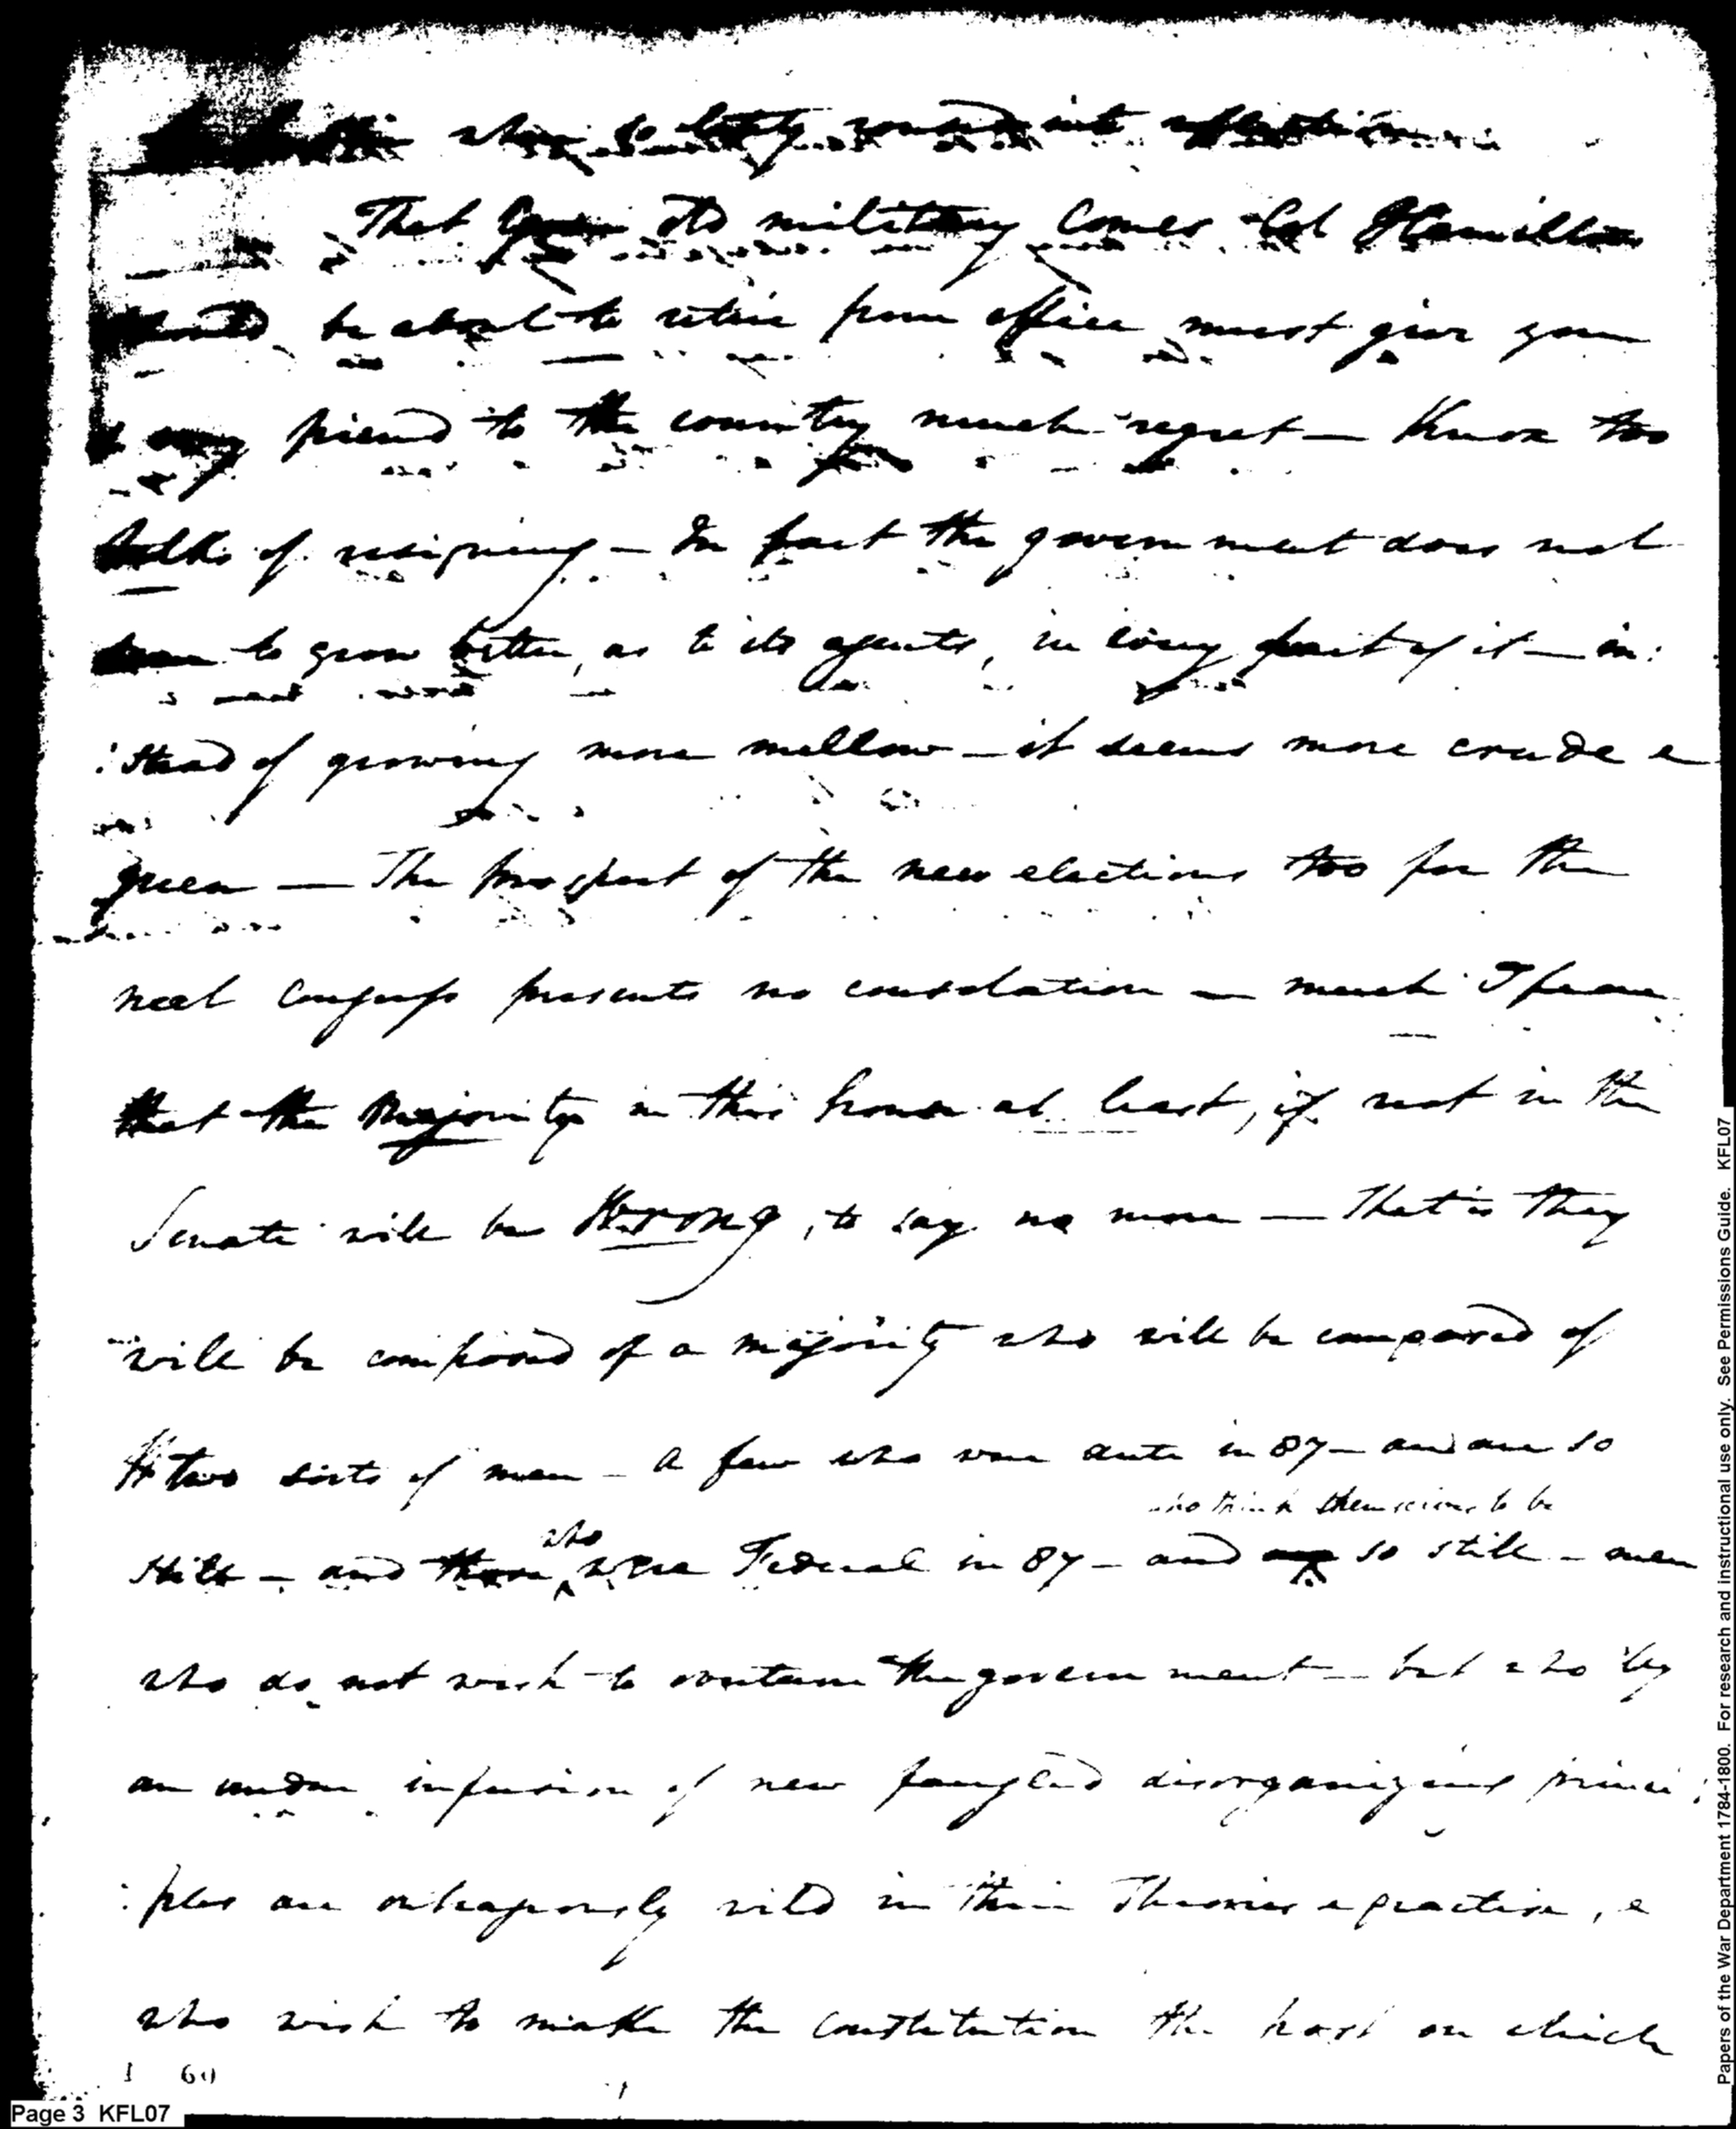 when so lately roused into reflection
That your old military Comes Col Hamilton
should be about to retire from office must give you
& any friend to the country much regret — Knox too
talks of resigning — In fact the government does not
seem to grow better, as to its agents, in every part of it — in:
:stead of growing more mellow — it seems more crude &
green — The prospect of the new elections too for the
next Congress presents no consolation — much I fear
that the Majority in this house at least, if not in the
Senate will be Wrong, to say no more — That is they
will be composed of a majority who will be composed of
two sorts of men — a few who were ante in 87 — and are so
who think themselves to be
who
still — and those were Federal in 87 — and are so still — men
who do not wish to overturn the government — but who by
an undue infusion of new fangled disorganizing princi:
:ples are outrageously wild in their Theories & practice, &
who wish to make the Constitution the host on which
1 60
Page 3 KFL07
Papers of the War Department 1784-1800. For research and instructional use only. See Permissions Guide. KFL07